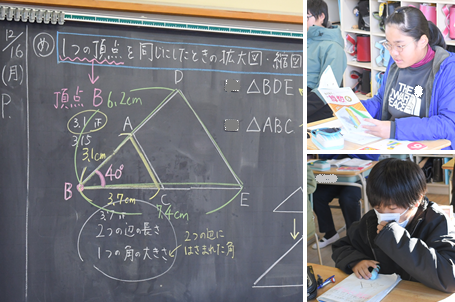 12/16
(月)
P.
め 1つの頂点を同じにしたときの拡大図・縮図
頂点 B
D
△BDE
△ABC
6.2cm
A
3.1cm
40°
B
3.7cm
C
7.4cm
E
2つの辺の長さ
1つの角の大きさ
2つの辺に
はさまれた角
THE
NORTH
FACE